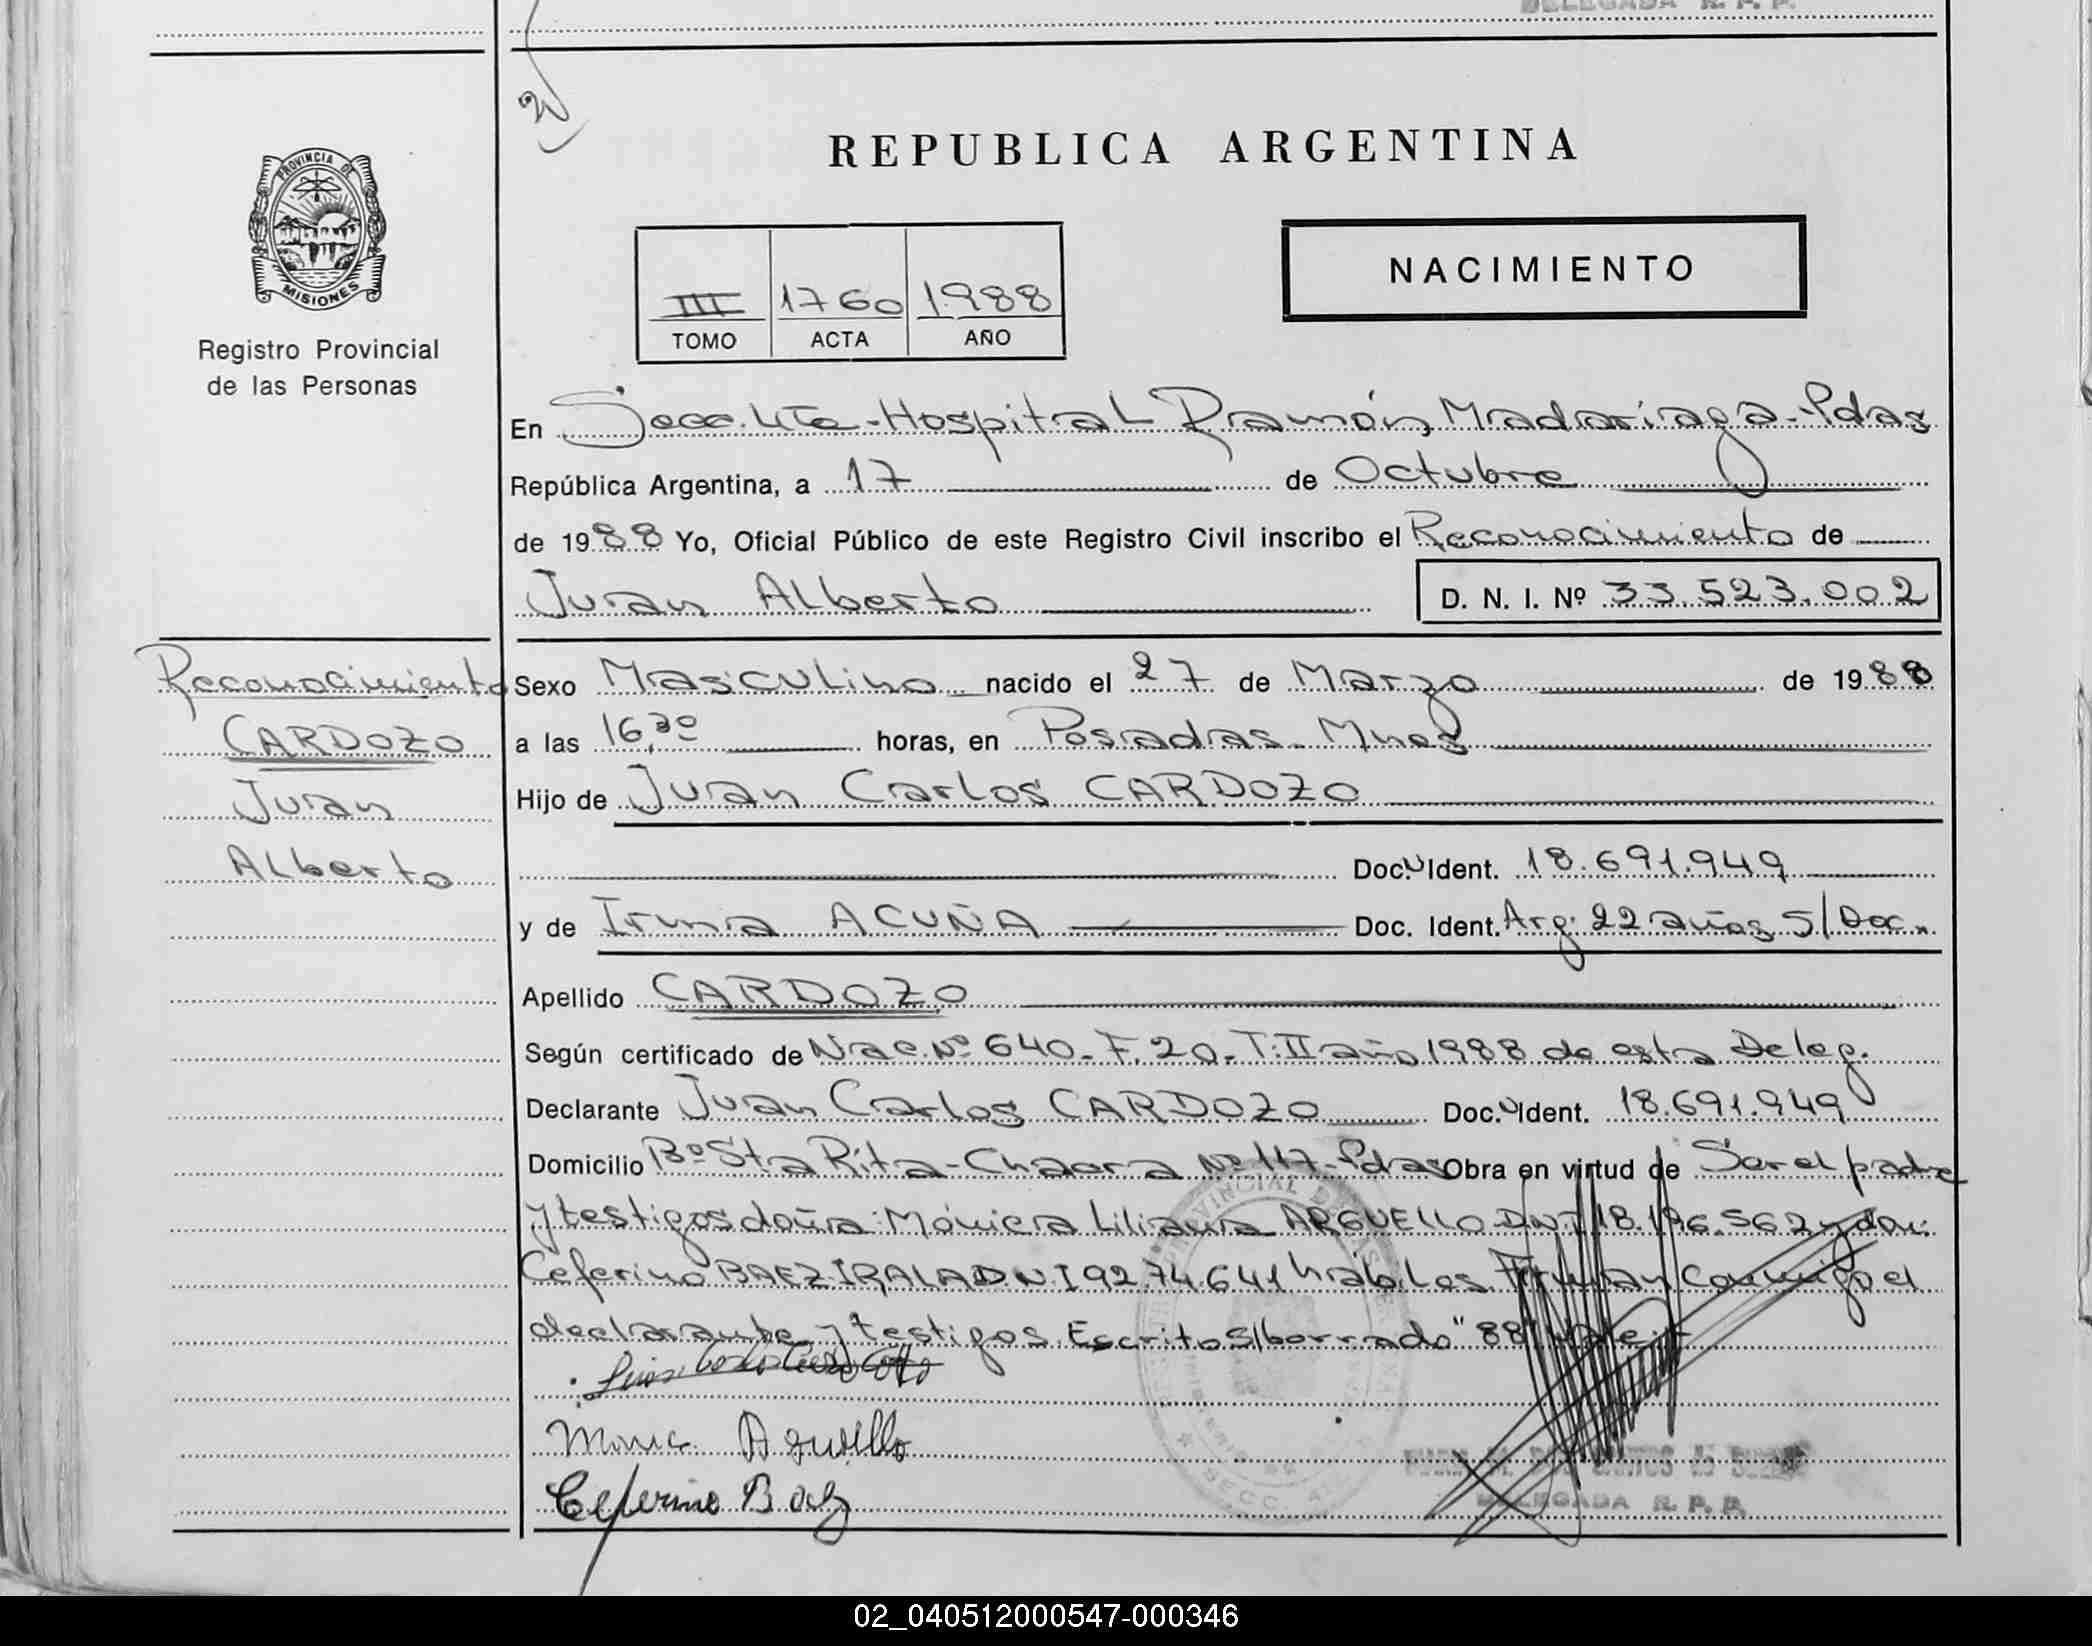 DELEGADA R. P. P.
REPUBLICA ARGENTINA
PROVINCIA DE
MISIONES
Registro Provincial
de las Personas
NACIMIENTO
III 1760 1988
TOMO ACTA AÑO
En Secc. 4ta-Hospital Ramón Madariaga-Pdas
República Argentina, a 17 de Octubre
de 1988 Yo, Oficial Público de este Registro Civil inscribo el Reconocimiento de
Juan Alberto D. N. I. Nº 33.523.002
Reconocimiento
CARDOZO
Juan
Alberto
Sexo Masculino nacido el 27 de Marzo de 1988
a las 16,30 horas, en Posadas-Mnes
Hijo de Juan Carlos CARDOZO
Doc. Ident. 18.691.949
y de Irma ACUÑA Doc. Ident. Arg. 22 años S/Doc.
Apellido CARDOZO
Según certificado de Nac.Nº 640-F.20-T:II año 1988 de esta Deleg.
Declarante Juan Carlos CARDOZO Doc. Ident. 18.691.949
Domicilio Bº Sta Rita-Chacra Nº 117-Pdas Obra en virtud de Ser el padre
y testigos doña: Mónica Liliana ARGUELLO DNI 18.196.562 y don:
Ceferino BAEZ IRALA DNI 92.74.641 hábiles. Firman conmigo el
declarante y testigos. Escrito s/borrado "88" Vale
Monica Arguello
Ceferino Baez
DELEGADA R. P. P.
02_040512000547-000346